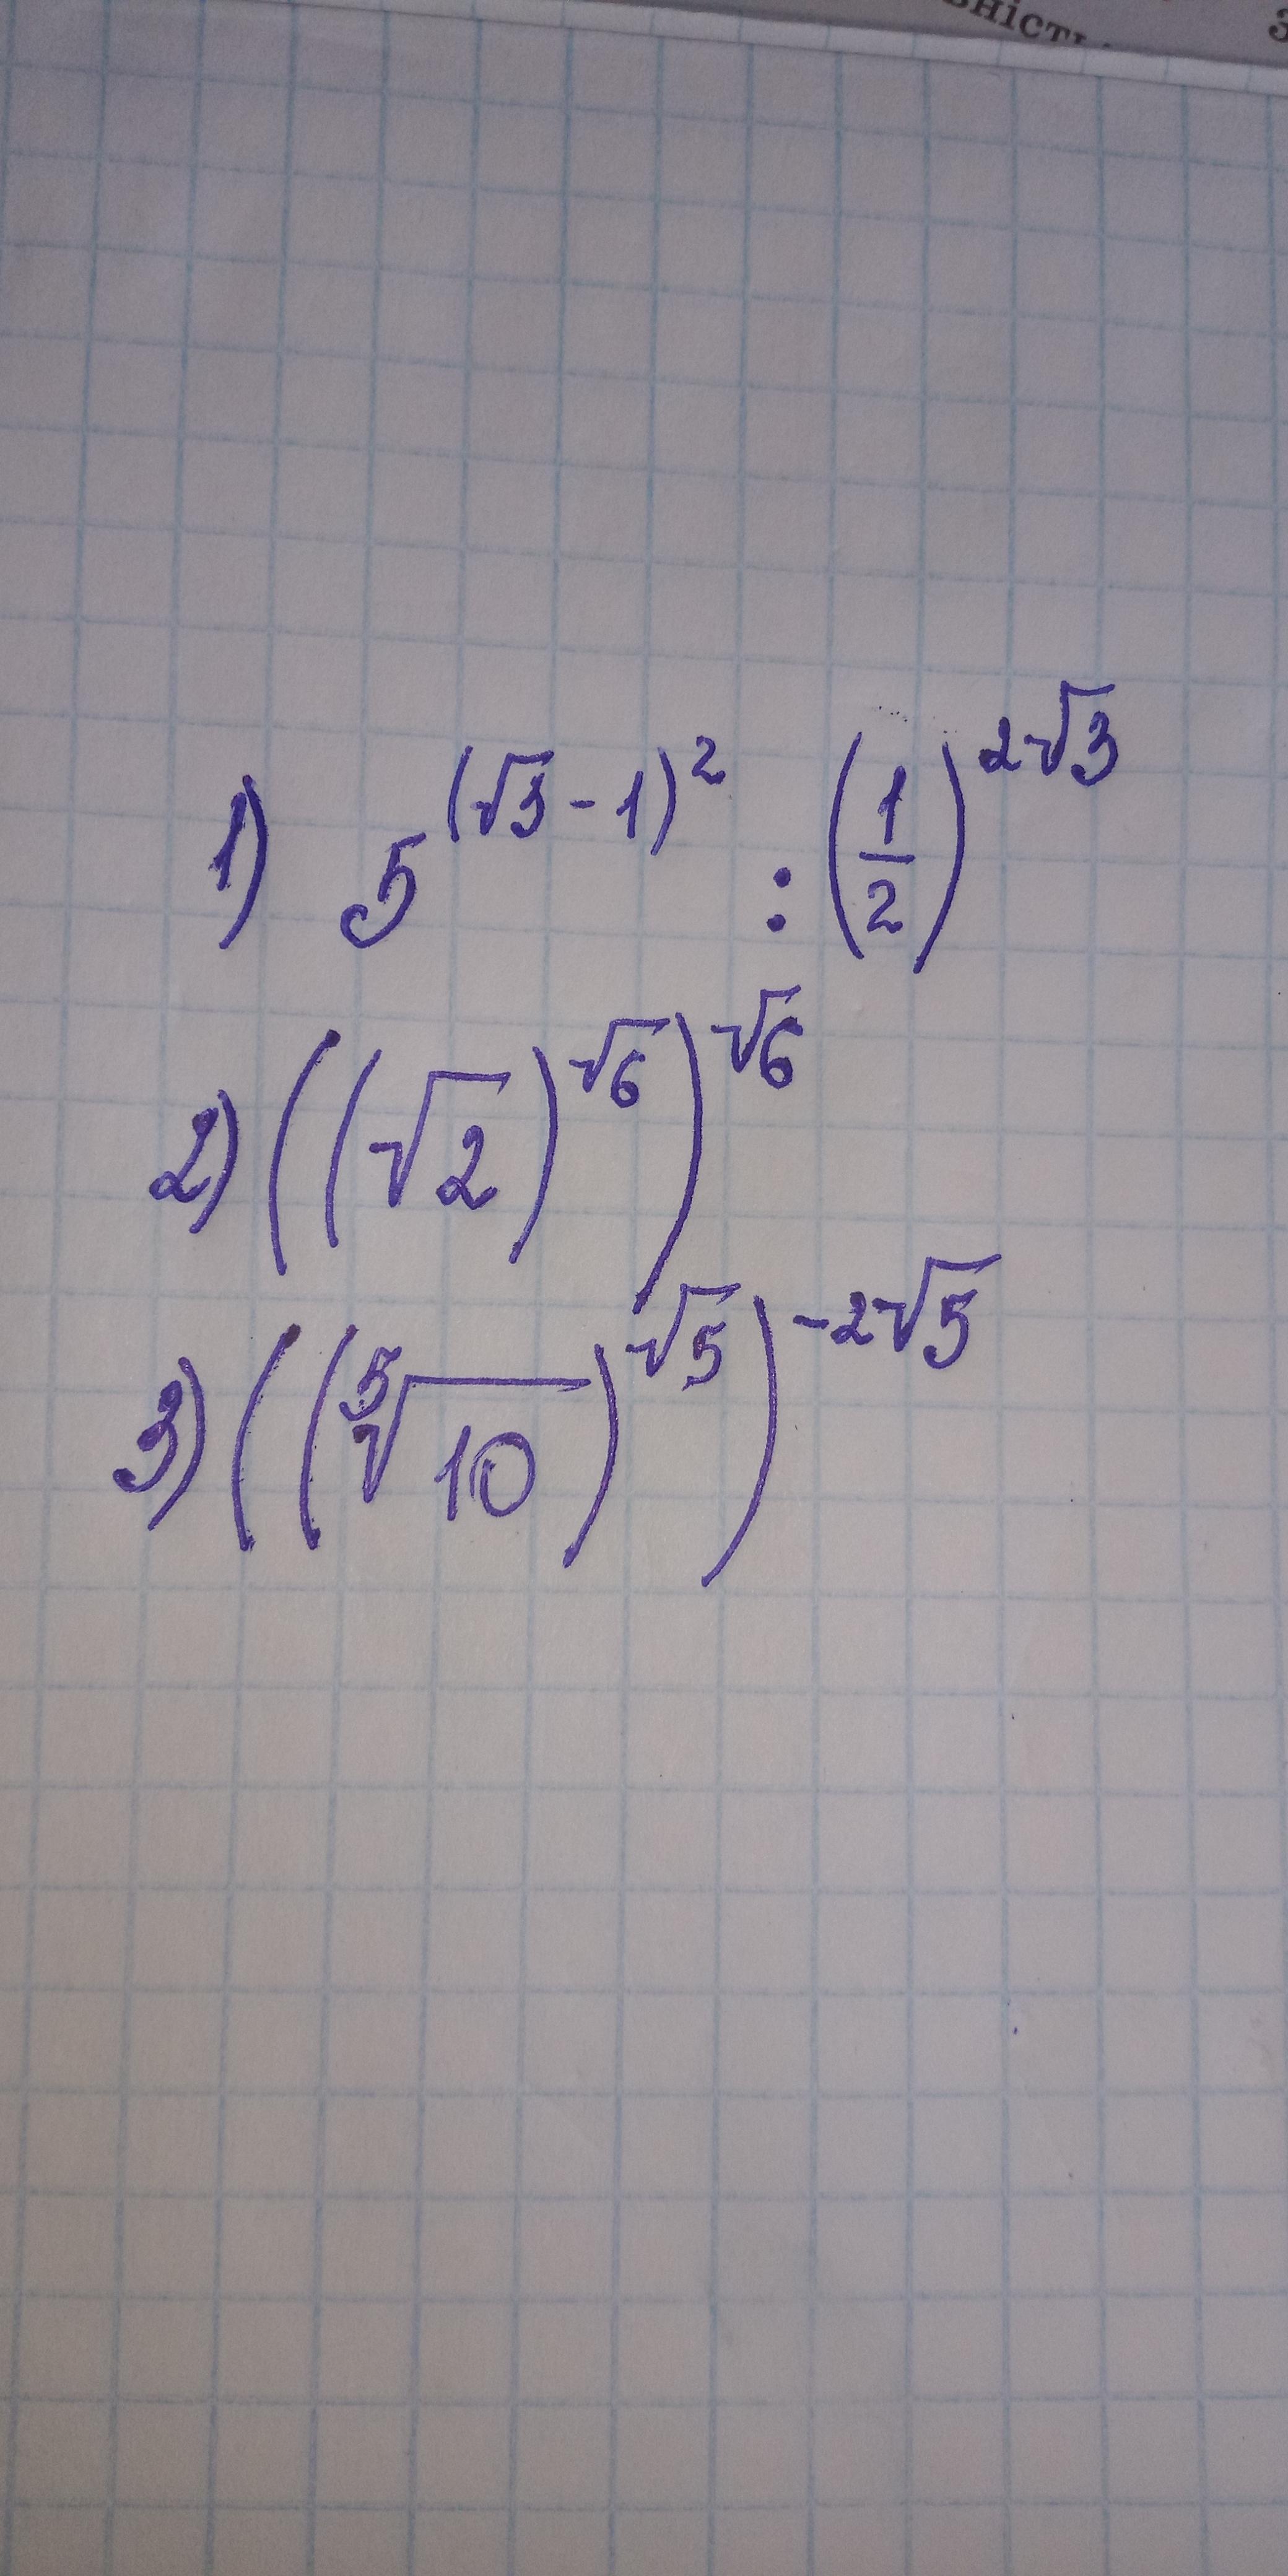 вність
1) 5^(√3-1)^2 : (1/2)^2√3
2) ((√2)^√6)^√6
3) ((⁵√10)^√5)^-2√5